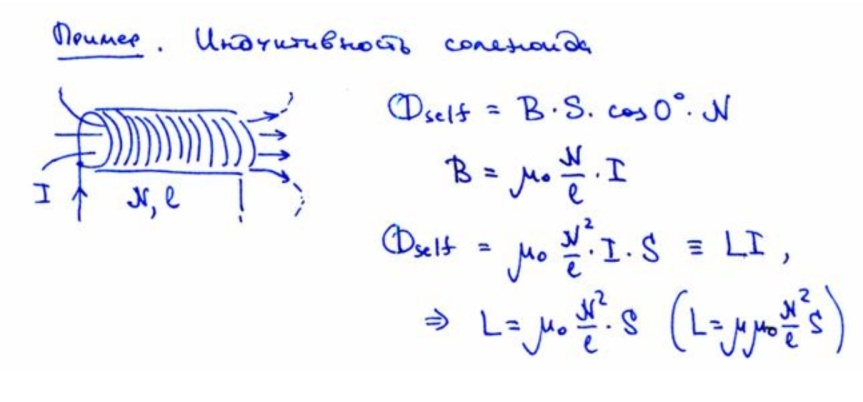 Пример. Индуктивность соленоида
Φself = B·S·cos0°·N
B = μ₀ N/ℓ · I
I
N, ℓ
Φself = μ₀ N²/ℓ · I · S ≡ LI,
⇒ L = μ₀ N²/ℓ · S (L = μμ₀ N²/ℓ S)